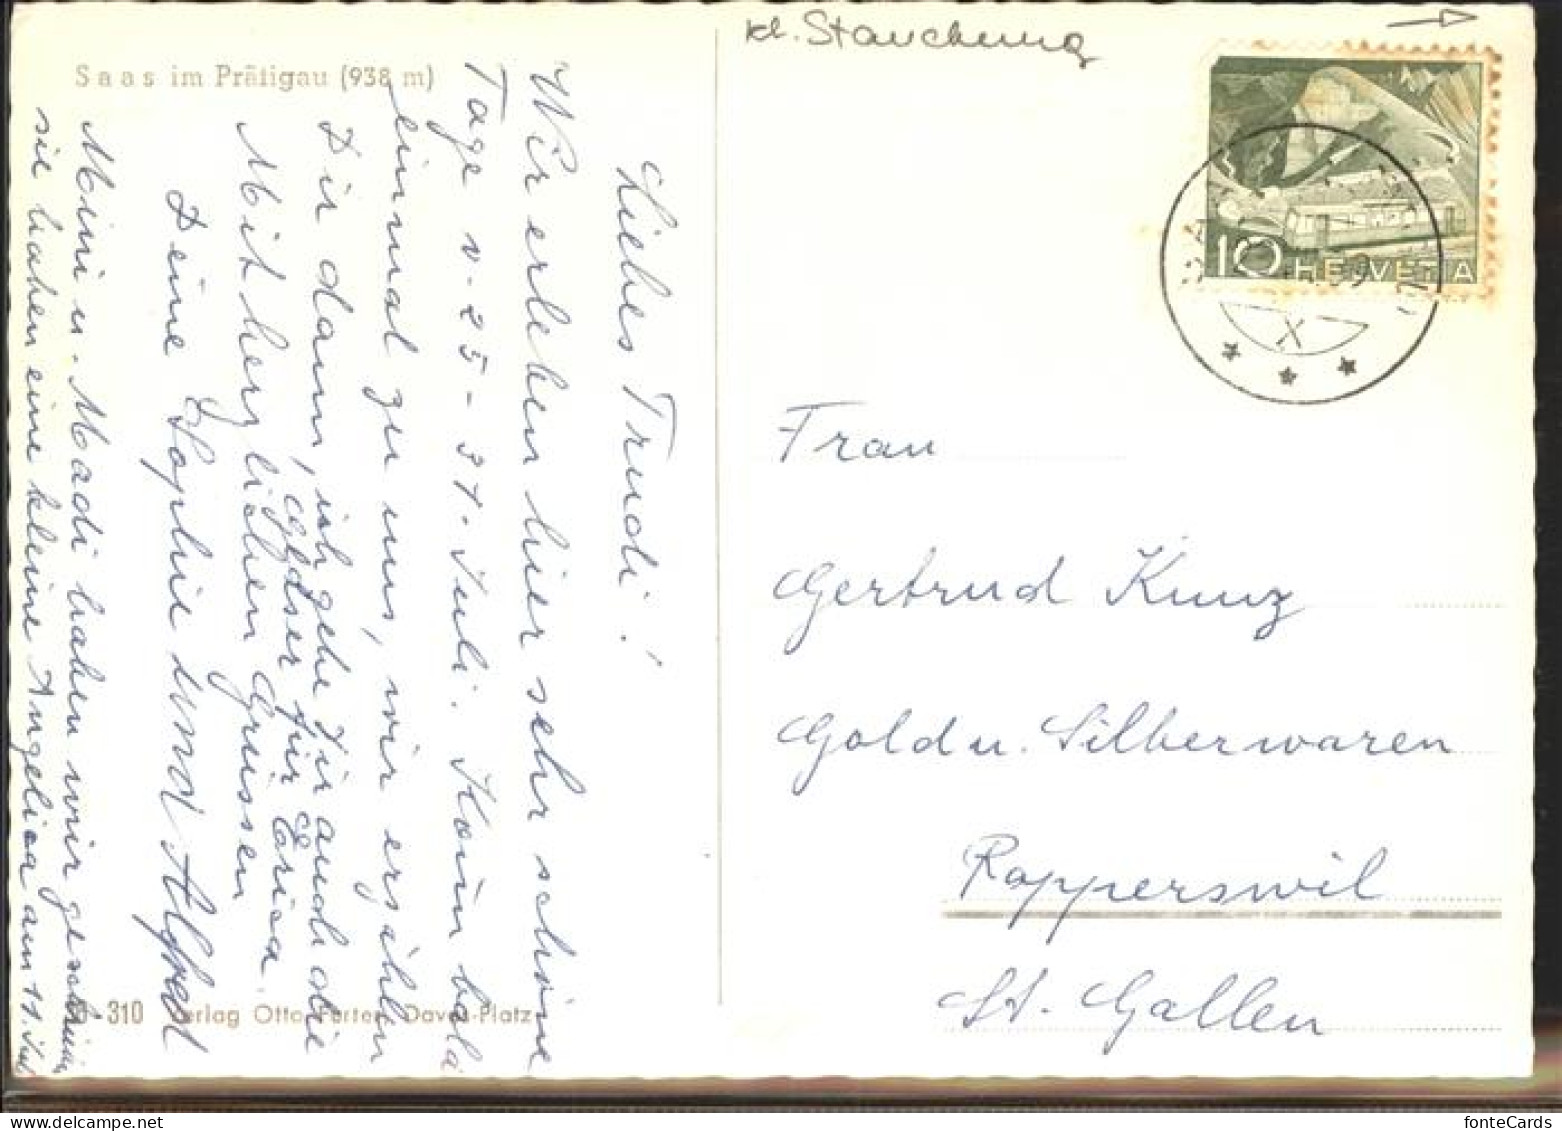 kl. Stauchung
Saas im Prätigau (938 m)
Liebes Trudi!
Wir erleben hier sehr schöne
Tage v. 25 - 31. Juli. Komm bald
einmal zu uns, wir erzählen
Dir dann, ich gebe Dir auch die
Gläser für Erica.
Mit herzlichen Grüssen
Deine Sophie und Alfred
Mimi u. Madi haben wir geschrieben
sie haben eine kleine Angelica am 11. Juli
310 Verlag Otto Furter, Davos-Platz
10 HELVETIA
X
Frau
Gertrud Kunz
Gold u. Silberwaren
Rapperswil
St. Gallen
fonteCards